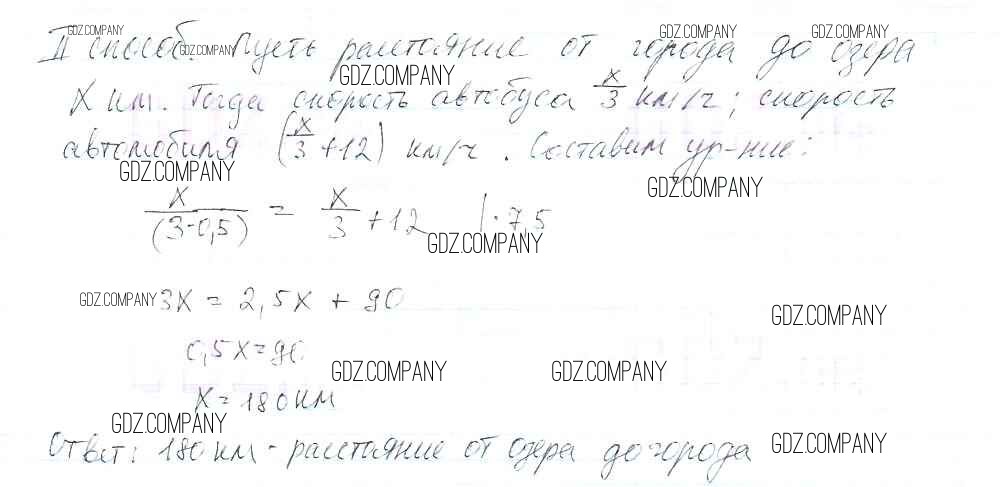 GDZ.COMPANY GDZ.COMPANY GDZ.COMPANY GDZ.COMPANY
II способ. Пусть расстояние от города до озера
GDZ.COMPANY
X км. Тогда скорость автобуса x/3 км/ч; скорость
автомобиля (x/3 + 12) км/ч. Составим ур-ние:
GDZ.COMPANY GDZ.COMPANY
x/(3-0,5) = x/3 + 12 | · 7,5
GDZ.COMPANY
GDZ.COMPANY 3x = 2,5x + 90
GDZ.COMPANY
0,5x = 90
GDZ.COMPANY GDZ.COMPANY
x = 180 км
GDZ.COMPANY
Ответ: 180 км - расстояние от озера до города
GDZ.COMPANY